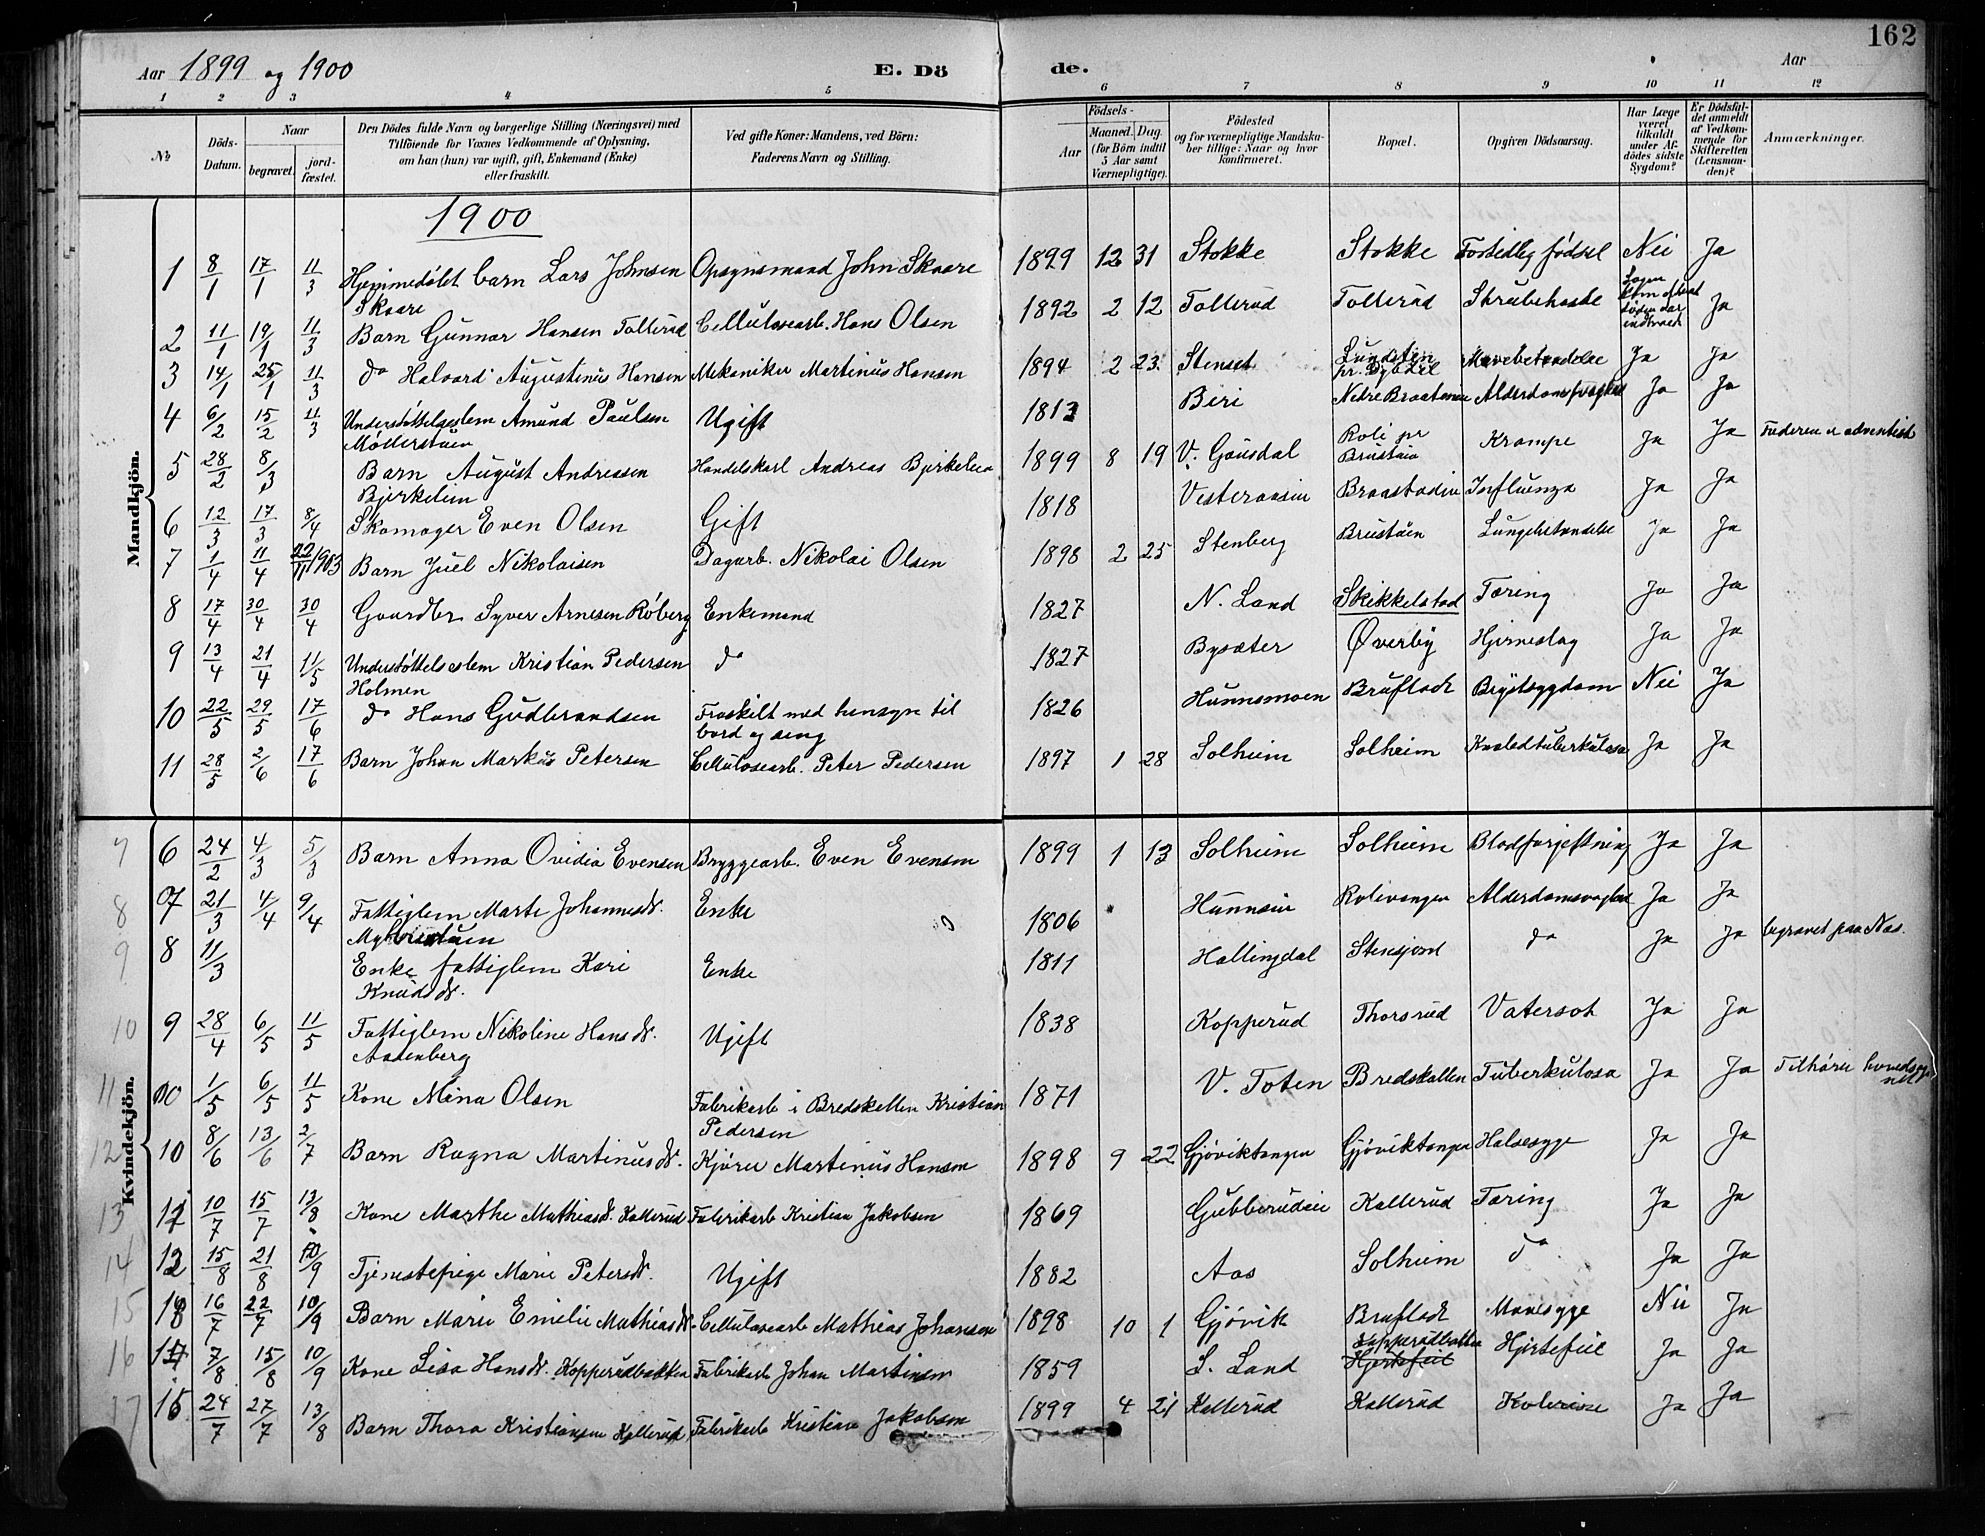 162
Aar 1899 og 1900 E. Dö de. Aar
1 2 3 4 5 6 7 8 9 10 11 12
No Döds-Datum. Naar begravet. jord-fæstet. Den Dödes fulde Navn og borgerlige Stilling (Næringsvei) med Tilföiende for Voxnes Vedkommende af Oplysning, om han (hun) var ugift, gift, Enkemand (Enke) eller fraskilt. Ved gifte Koner: Mandens, ved Börn: Faderens Navn og Stilling. Födsels- Aar Maaned. Dag. (for Börn indtil 5 Aar samt Værnepligtige). Födested og for værnepligtige Mandskaber tillige: Naar og hvor konfirmeret. Bopæl. Opgiven Dödsaarsag. Har Læge været tilkaldt under Afdödes sidste Sygdom? Er Dödsfaldet anmeldt af Vedkommende for Skifteretten (Lensmanden)? Anmærkninger.
Mandkjön.
1900
1 8/1 17/1 11/3 Hjemmedøbt barn Lars Johnsen Skaare Opsynsmand John Skaare 1899 12 31 Stokke Stokke Fortidlig fødsel Nei Ja
2 11/1 19/1 11/3 Barn Gunnar Hansen Tollerud Cellulosearb. Hans Olsen 1892 2 12 Tollerud Tollerud Strubehoste Ja
3 14/1 25/1 11/3 do Halvard Augustinus Hansen Mekaniker Martinus Hansen 1894 2 23 Stenset Mavebetændelse Ja Ja
4 6/2 15/2 11/3 Understøttelseslem Amund Paulsen Møllerstuen Ugift 1813 Biri Nedre Braatenen Alderdomssvaghed Ja Ja
5 28/2 8/3 Barn August Andreasen Bjerkelien Handelskarl Andreas Bjerkelien 1899 8 19 V. Gausdal Roli pr Brustuen Krampe Ja Ja Faderen er adventist
6 12/3 17/3 8/4 Skomager Even Olsen Gift 1818 Vesteraasen Braastadlien Influenza Ja Ja
7 1/4 11/4 22/11 1903 Barn Juel Nikolaisen Dagarb. Nikolai Olsen 1898 2 25 Stenberg Brustuen Lungebetændelse Ja Ja
8 17/4 30/4 30/4 Gaardbr Syver Arnesen Røberg Enkemand 1827 N. Land Skikkelstad Tæring Ja Ja
9 13/4 21/4 11/5 Understøttelseslem Kristian Pedersen Holmen do 1827 Bysæter Øverby Hjerneslag Ja Ja
10 22/5 29/5 17/6 do Hans Gudbrandsen Fraskilt med hensyn til bord og seng 1826 Hunnsmoen Brufladt Brystsygdom Nei Ja
11 28/5 2/6 17/6 Barn Johan Markus Petersen Cellulosearb. Peter Pedersen 1897 1 28 Solheim Solheim Knoledtuberkulose Ja Ja
Kvindekjön.
7 6 24/2 4/3 5/3 Barn Anna Ovidia Evensen Bryggearb. Even Evensen 1899 1 13 Solheim Solheim Blodforgiftning Ja Ja
8 7 21/3 4/4 9/4 Fattiglem Marte Johannesdr. Enke 1806 Hunnseie Rolivangen Alderdomsvaghed Ja Ja
9 8 11/3 Enke fattiglem Kari Knudsdr. Enke 1811 Hallingdal Stensjord do Ja Ja begravet paa Næs.
10 9 28/4 6/5 11/5 Fattiglem Nikoline Hansdr. Aadenberg Ugift 1838 Kopperud Thorsrud Vatersot Ja Ja
11 10 1/5 6/5 11/5 Kone Mina Olsen Fabrikarb i Bredskallen Kristian Pedersen 1871 V. Toten Bredskallen Tuberkulose Ja Ja Tilhører
12 10 8/6 13/6 2/7 Barn Ragna Martinusdr. Kjører Martinus Hansen 1898 9 22 Gjøviktangen Gjøviktangen Halsesyge Ja Ja
13 11 10/7 15/7 13/8 Kone Marthe Mathiasdr. Kallerud Fabrikarb Kristian Jakobsen 1869 Gubberudeie Kallerud Tæring Ja Ja
14 12 15/8 21/8 10/9 Tjenestepige Marie Petersdr. Ugift 1882 Aas Solheim do Ja Ja
15 13 16/7 22/7 10/9 Barn Marie Emelie Mathiasdr. Cellulosearb Mathias Johansen 1898 10 1 Gjøvik Brufladt Mavesyge Nei Ja
16 7/8 15/8 10/9 Kone Lisa Hansdr. Kopperudbakken Fabrikarb Johan Martinsen 1859 S. Land Kopperudbakken Hjertefeil Hjertefeil Ja Ja
17 15 24/7 27/7 13/8 Barn Thora Kristiansen Kallerud Fabrikarb Kristian Jakobsen 1899 4 21 Kallerud Kallerud Kolerine Ja Ja